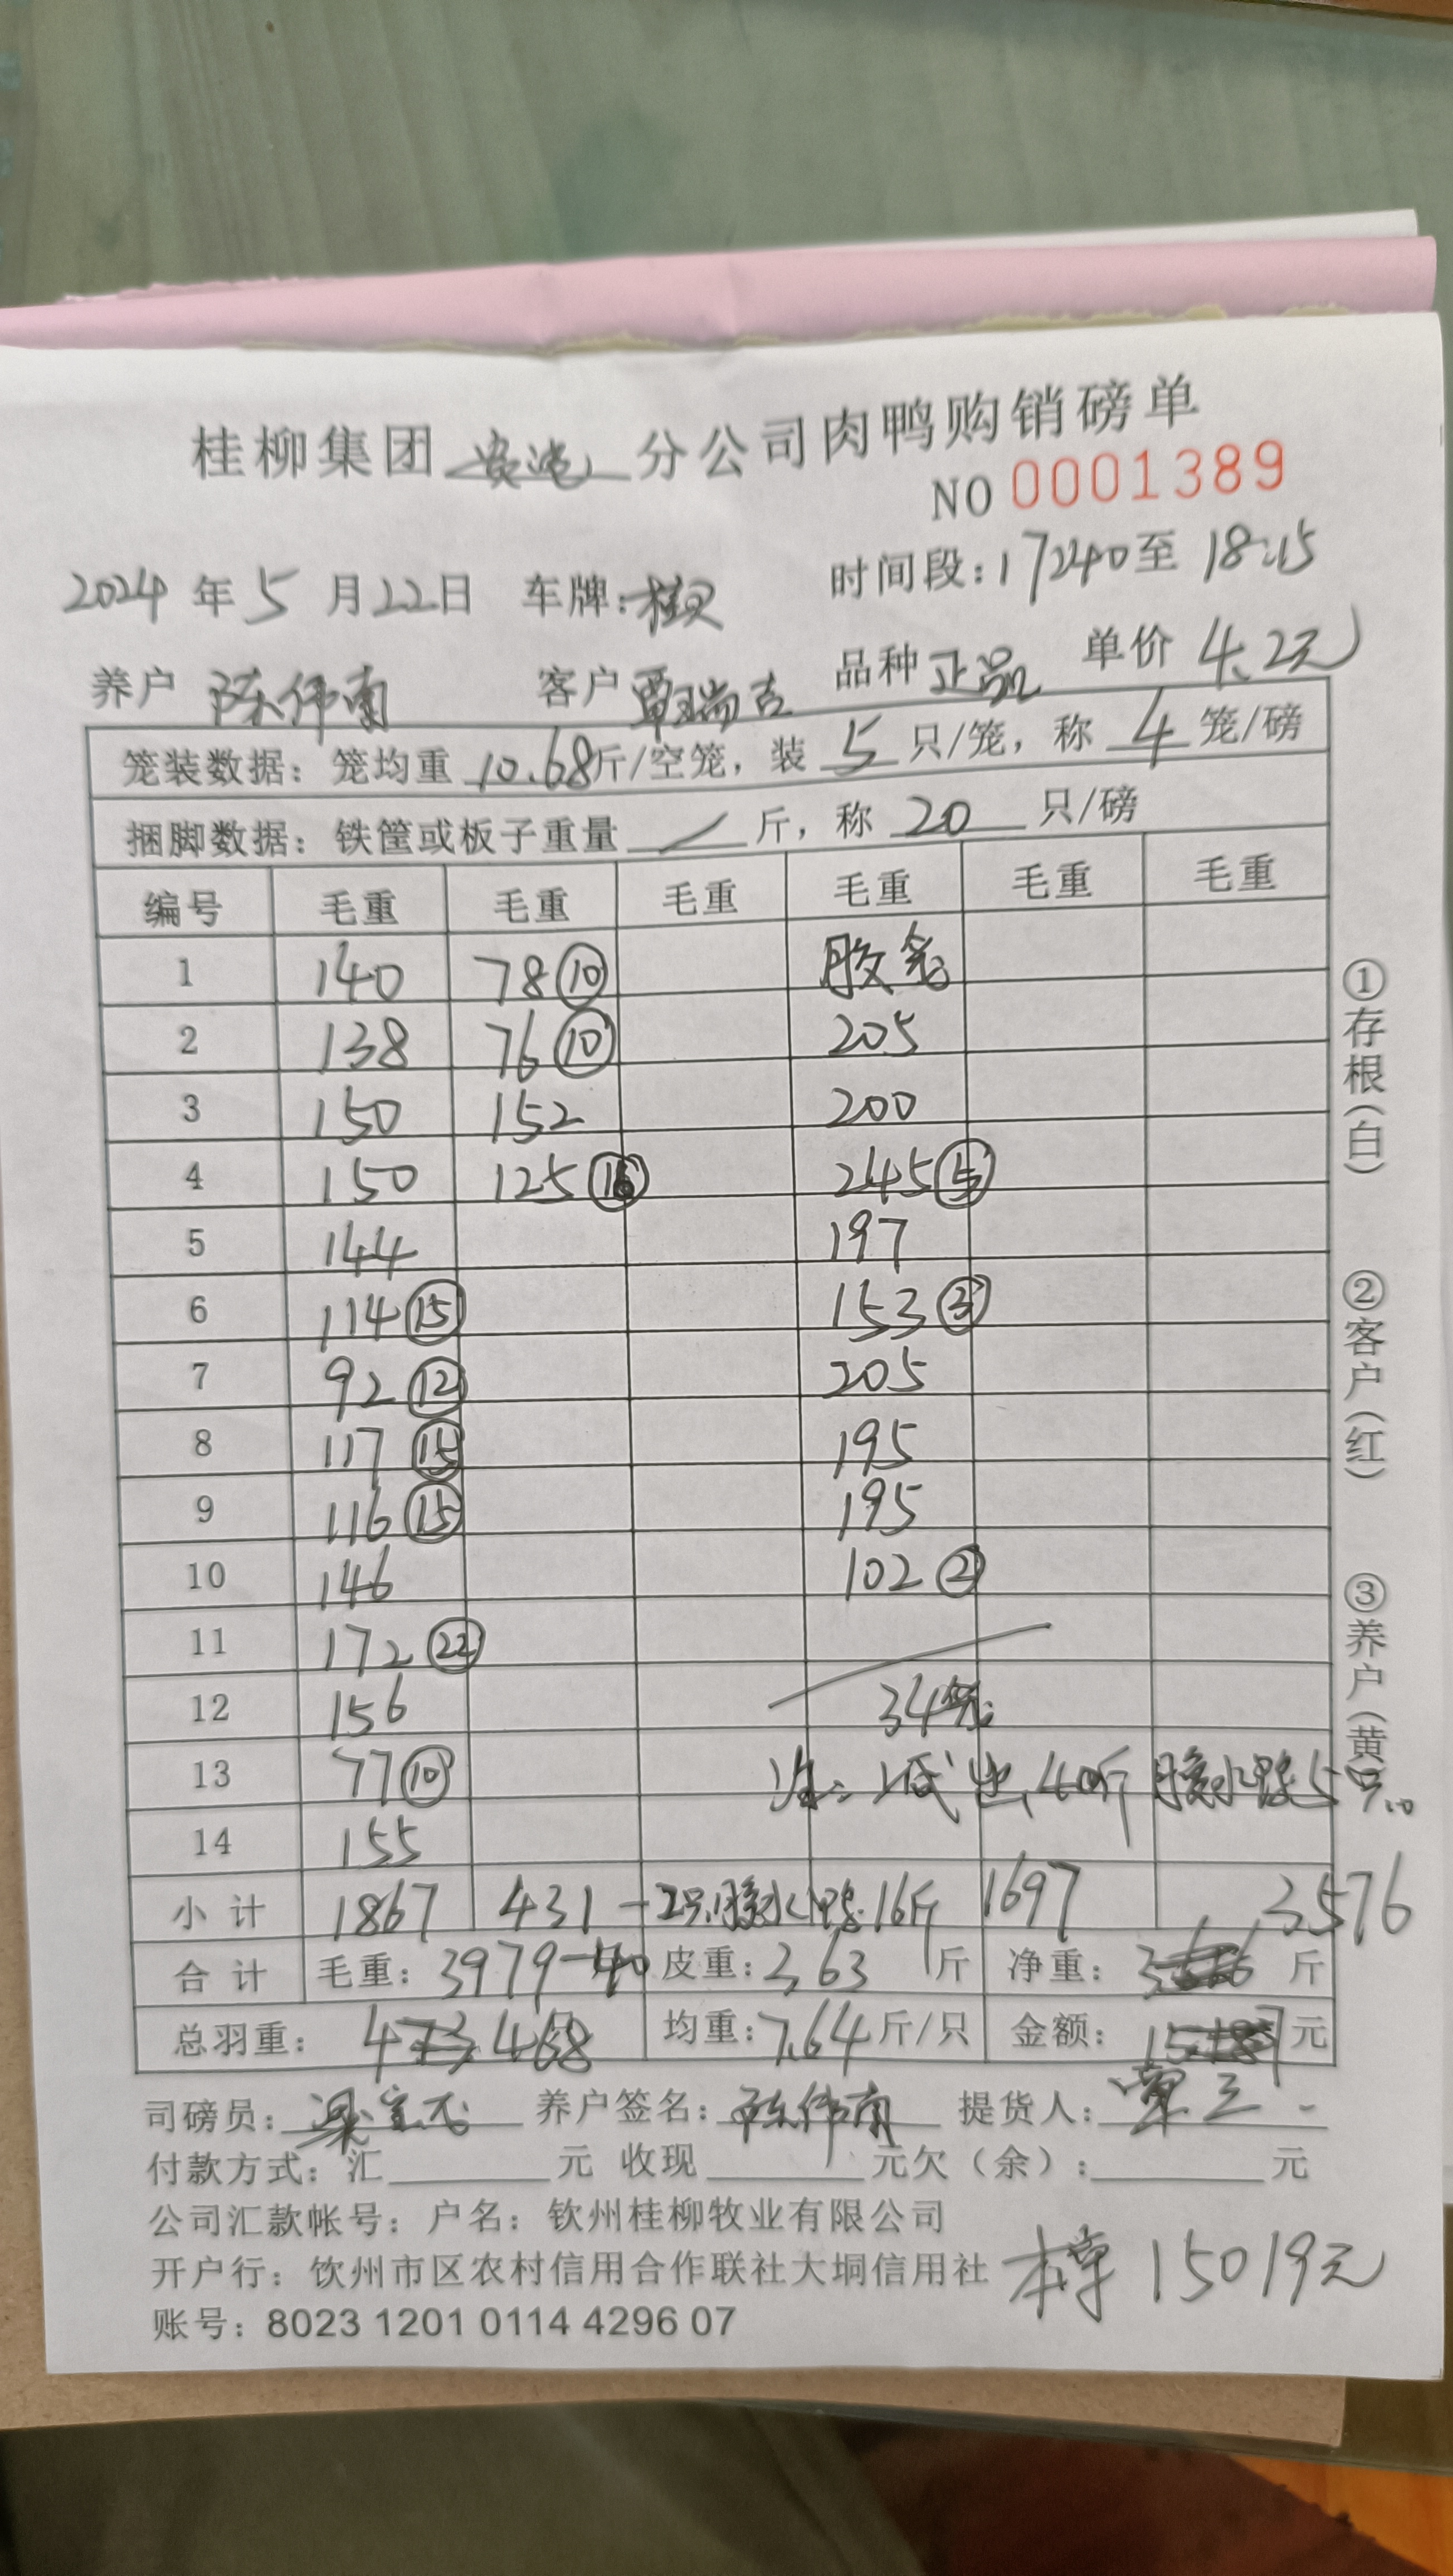 桂柳集团 分公司肉鸭购销磅单
NO 0001389
2024 年 5 月 22 日 车牌: 时间段: 17:40 至 18:15
养户 陈伟南 客户 覃瑞吉 品种 正品 单价 4.2元
笼装数据: 笼均重 10.68 斤/空笼, 装 5 只/笼, 称 4 笼/磅
捆脚数据: 铁筐或板子重量 / 斤, 称 20 只/磅
编号 毛重 毛重 毛重 毛重 毛重 毛重
1 140 78 ⑩ 胶笼
2 138 76 ⑩ 205
3 150 152 200
4 150 125 ⑯ 245 ⑤
5 144 197
6 114 ⑮ 153 ③
7 92 ⑫ 205
8 117 ⑮ 195
9 116 ⑮ 195
10 146 102 ②
11 172 ㉒
12 156 34笼
13 77 ⑩ 注: 40斤 水鸭5只
14 155
小计 1867 431 -2只 水鸭 16斤 1697 3576
合计 毛重: 3979-40 皮重: 363 斤 净重: 斤
总羽重: 473 468 均重: 7.64 斤/只 金额: 元
司磅员: 养户签名: 陈伟南 提货人: 覃三
付款方式: 汇 元 收现 元欠(余): 元
公司汇款帐号: 户名: 钦州桂柳牧业有限公司
开户行: 饮州市区农村信用合作联社大垌信用社
15019元
账号: 8023 1201 0114 4296 07
①存根(白) ②客户(红) ③养户(黄)